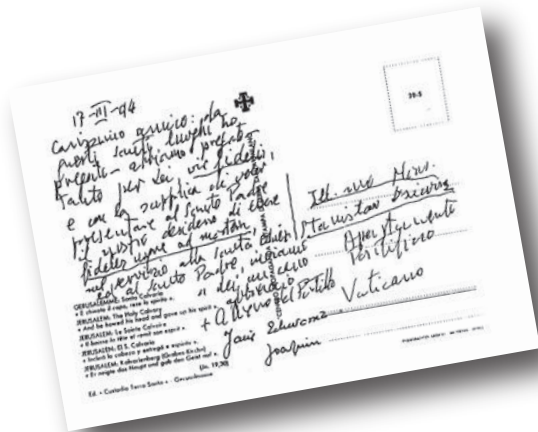 17-III-94
Carissimo amico: da
questi santi luoghi ho
presente - abbiamo pregato
tanto per Lei vir fidelis,
e con la supplica di voler
presentare al Santo Padre
il nostro desiderio di essere
fideles usque ad mortem,
nel servizio alla Santa Chiesa
ed al Santo Padre, inviamo
abbraccio
+ Alvaro del Portillo
Javier Echevarría
Joaquín
GERUSALEMME: Santo Calvario
« E chinato il capo, rese lo spirito ».
JERUSALEM: The Holy Calvary
« And he bowed his head and gave up his spirit ».
JERUSALEM: Le Saint Calvaire
« Il baissa la tête et rendit son esprit »
JERUSALEN: El S. Calvario
« Inclinó la cabeza y entregó el espíritu »
JERUSALEM: Kalvarienberg (Grabes Kirche)
« Er neigte das Haupt und gab den Geist auf ».
(Jn. 19,30)
Ed. « Custodia Terra Santa » - Gerusalemme
20-5
Mons.
Stanislao
Appartamento
Pontificio
Vaticano